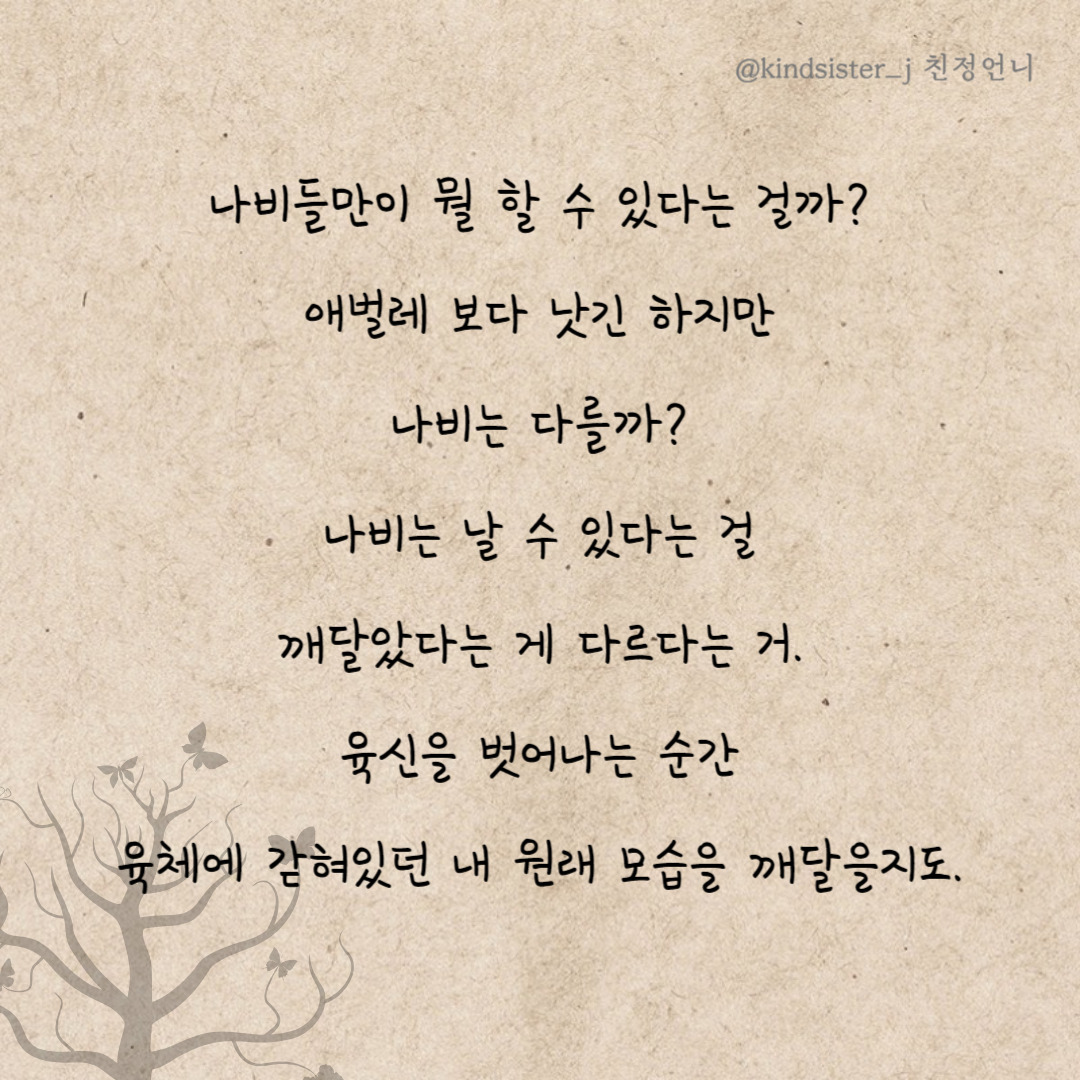 @kindsister_j 친정언니
나비들만이 뭘 할 수 있다는 걸까?
애벌레 보다 낫긴 하지만
나비는 다를까?
나비는 날 수 있다는 걸
깨달았다는 게 다르다는 거.
육신을 벗어나는 순간
육체에 갇혀있던 내 원래 모습을 깨달을지도.